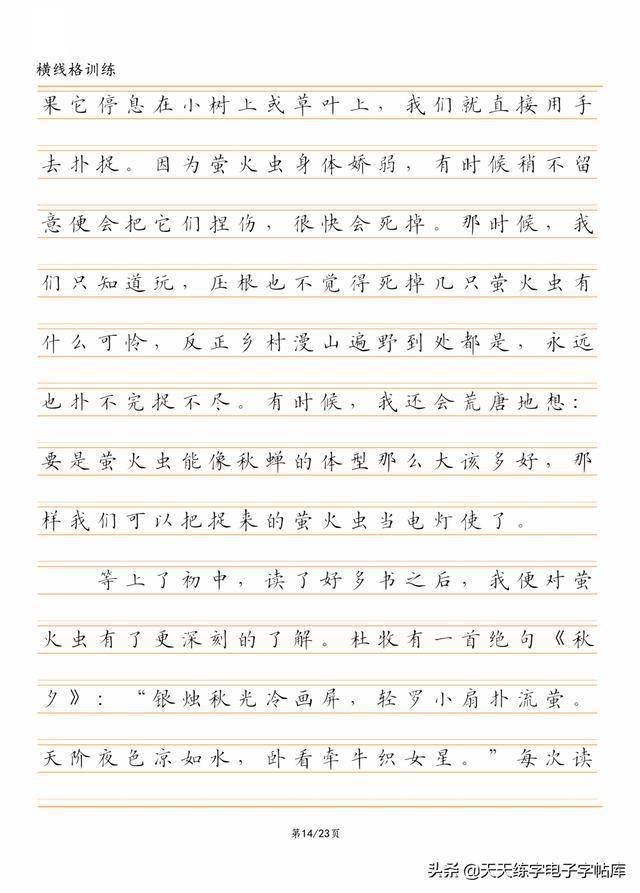 横线格训练
果它停息在小树上或草叶上，我们就直接用手
去扑捉。因为萤火虫身体娇弱，有时候稍不留
意便会把它们捏伤，很快会死掉。那时候，我
们只知道玩，压根也不觉得死掉几只萤火虫有
什么可怜，反正乡村漫山遍野到处都是，永远
也扑不完捉不尽。有时候，我还会荒唐地想：
要是萤火虫能像秋蝉的体型那么大该多好，那
样我们可以把捉来的萤火虫当电灯使了。
等上了初中，读了好多书之后，我便对萤
火虫有了更深刻的了解。杜牧有一首绝句《秋
夕》：“银烛秋光冷画屏，轻罗小扇扑流萤。
天阶夜色凉如水，卧看牵牛织女星。”每次读
第14/23页
头条@天天练字电子字帖库